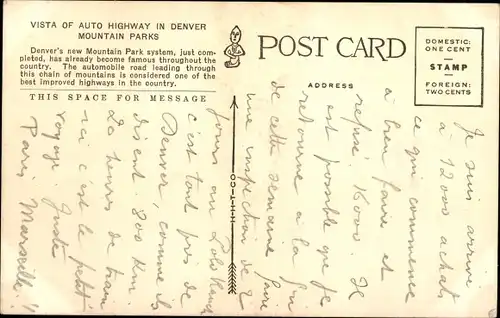 VISTA OF AUTO HIGHWAY IN DENVER
MOUNTAIN PARKS
Denver's new Mountain Park system, just com-
pleted, has already become famous throughout the
country. The automobile road leading through
this chain of mountains is considered one of the
best improved highways in the country.
THIS SPACE FOR MESSAGE
POST CARD
ADDRESS
DOMESTIC:
ONE CENT
STAMP
FOREIGN:
TWO CENTS
O-T-T-H-H
Je suis arrivé
à 12000 achats
ce qui commence
à bien faire et
refusé 16000. Il
est possible que je
retourne à la fin
de cette semaine faire
une inspection de 2
jours au Polo Ranch
c'est tout près de
Denver, comme ils
disent. 800 Km.
20 heures de train
ici c'est le petit
voyage. Juste
Paris Marseille !!